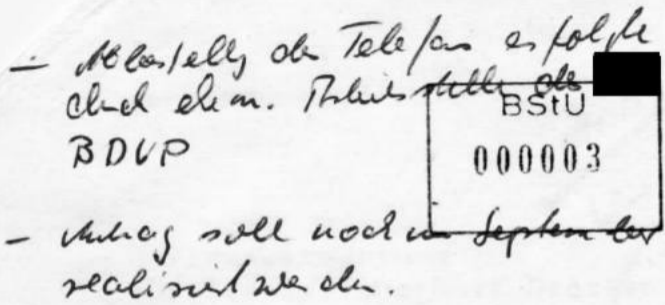 - Abbestellg des Telefons erfolgte
durch ehem. Arbeitsstelle des
BStU
BDVP
000003
- Antrag soll noch im September
realisiert werden.